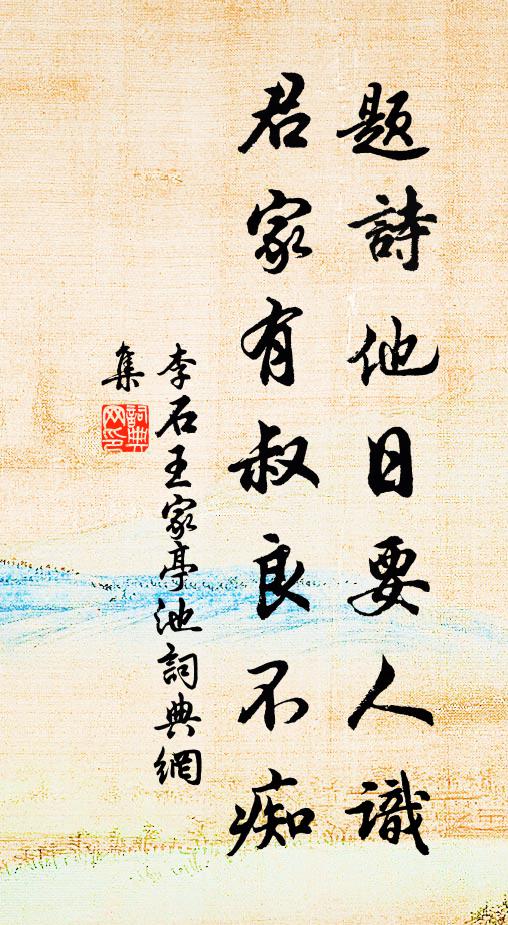 題詩他日要人識
君家有叔良不痴
李石王家亭池詞典網
集
詞典
网印